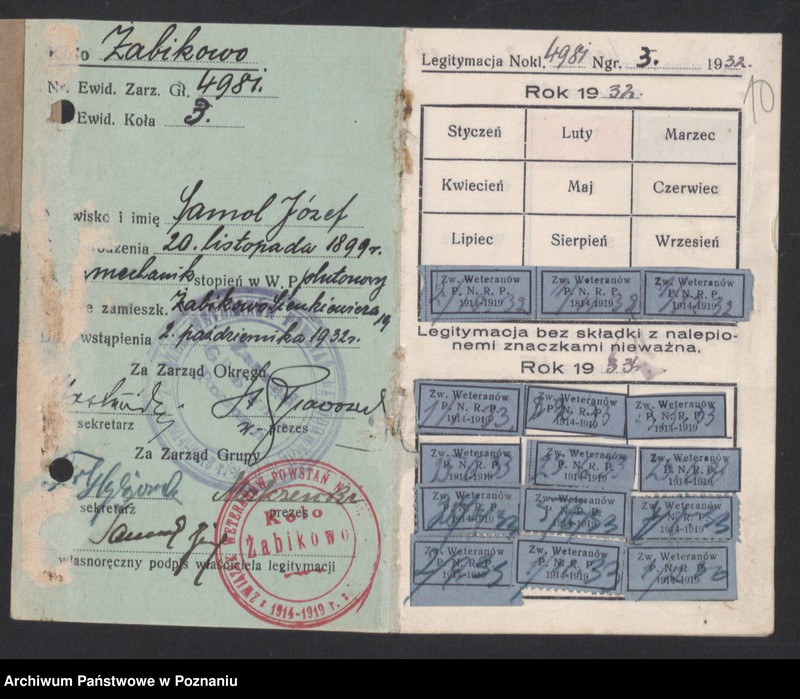 Koło Żabikowo
Nr. Ewid. Zarz. Gł. 498i.
Ewid. Koła 3.
wisko i imię Samol Józef
odzenia 20. listopada 1899 r.
mechanik stopień w W. P. plutonowy
e zamieszk. Żabikowo Sienkiewicza 19
wstąpienia 2. października 1932 r.
Za Zarząd Okręgu
sekretarz
prezes
Za Zarząd Grupy
sekretarz
prezes
Samol Józef
własnoręczny podpis właściciela legitymacji
ZWIĄZEK WETERANÓW POWSTAŃ
Koło
Żabikowo
1914-1919 r.
Legitymacja Nokl. 498i Ngr. 3. 1932.
10
Rok 1932.
Styczeń Luty Marzec
Kwiecień Maj Czerwiec
Lipiec Sierpień Wrzesień
Zw. Weteranów Zw. Weteranów Zw. Weteranów
P. N. R. P. P. N. R. P. P. N. R. P.
1914-1919 1914-1919 1914-1919
Legitymacja bez składki z nalepio-
nemi znaczkami nieważna.
Rok 1933.
Zw. Weteranów Zw. Weteranów Zw. Weteranów
P. N. R. P. P. N. R. P. P. N. R. P.
1914-1919 1914-1919 1914-1919
Zw. Weteranów Zw. Weteranów Zw. Weteranów
P. N. R. P. P. N. R. P. P. N. R. P.
1914-1919 1914-1919 1914-1919
Zw. Weteranów Zw. Weteranów Zw. Weteranów
P. N. R. P. P. N. R. P. P. N. R. P.
1914-1919 1914-1919 1914-1919
Zw. Weteranów Zw. Weteranów Zw. Weteranów
P. N. R. P. P. N. R. P. P. N. R. P.
1914-1919 1914-1919 1914-1919
Archiwum Państwowe w Poznaniu